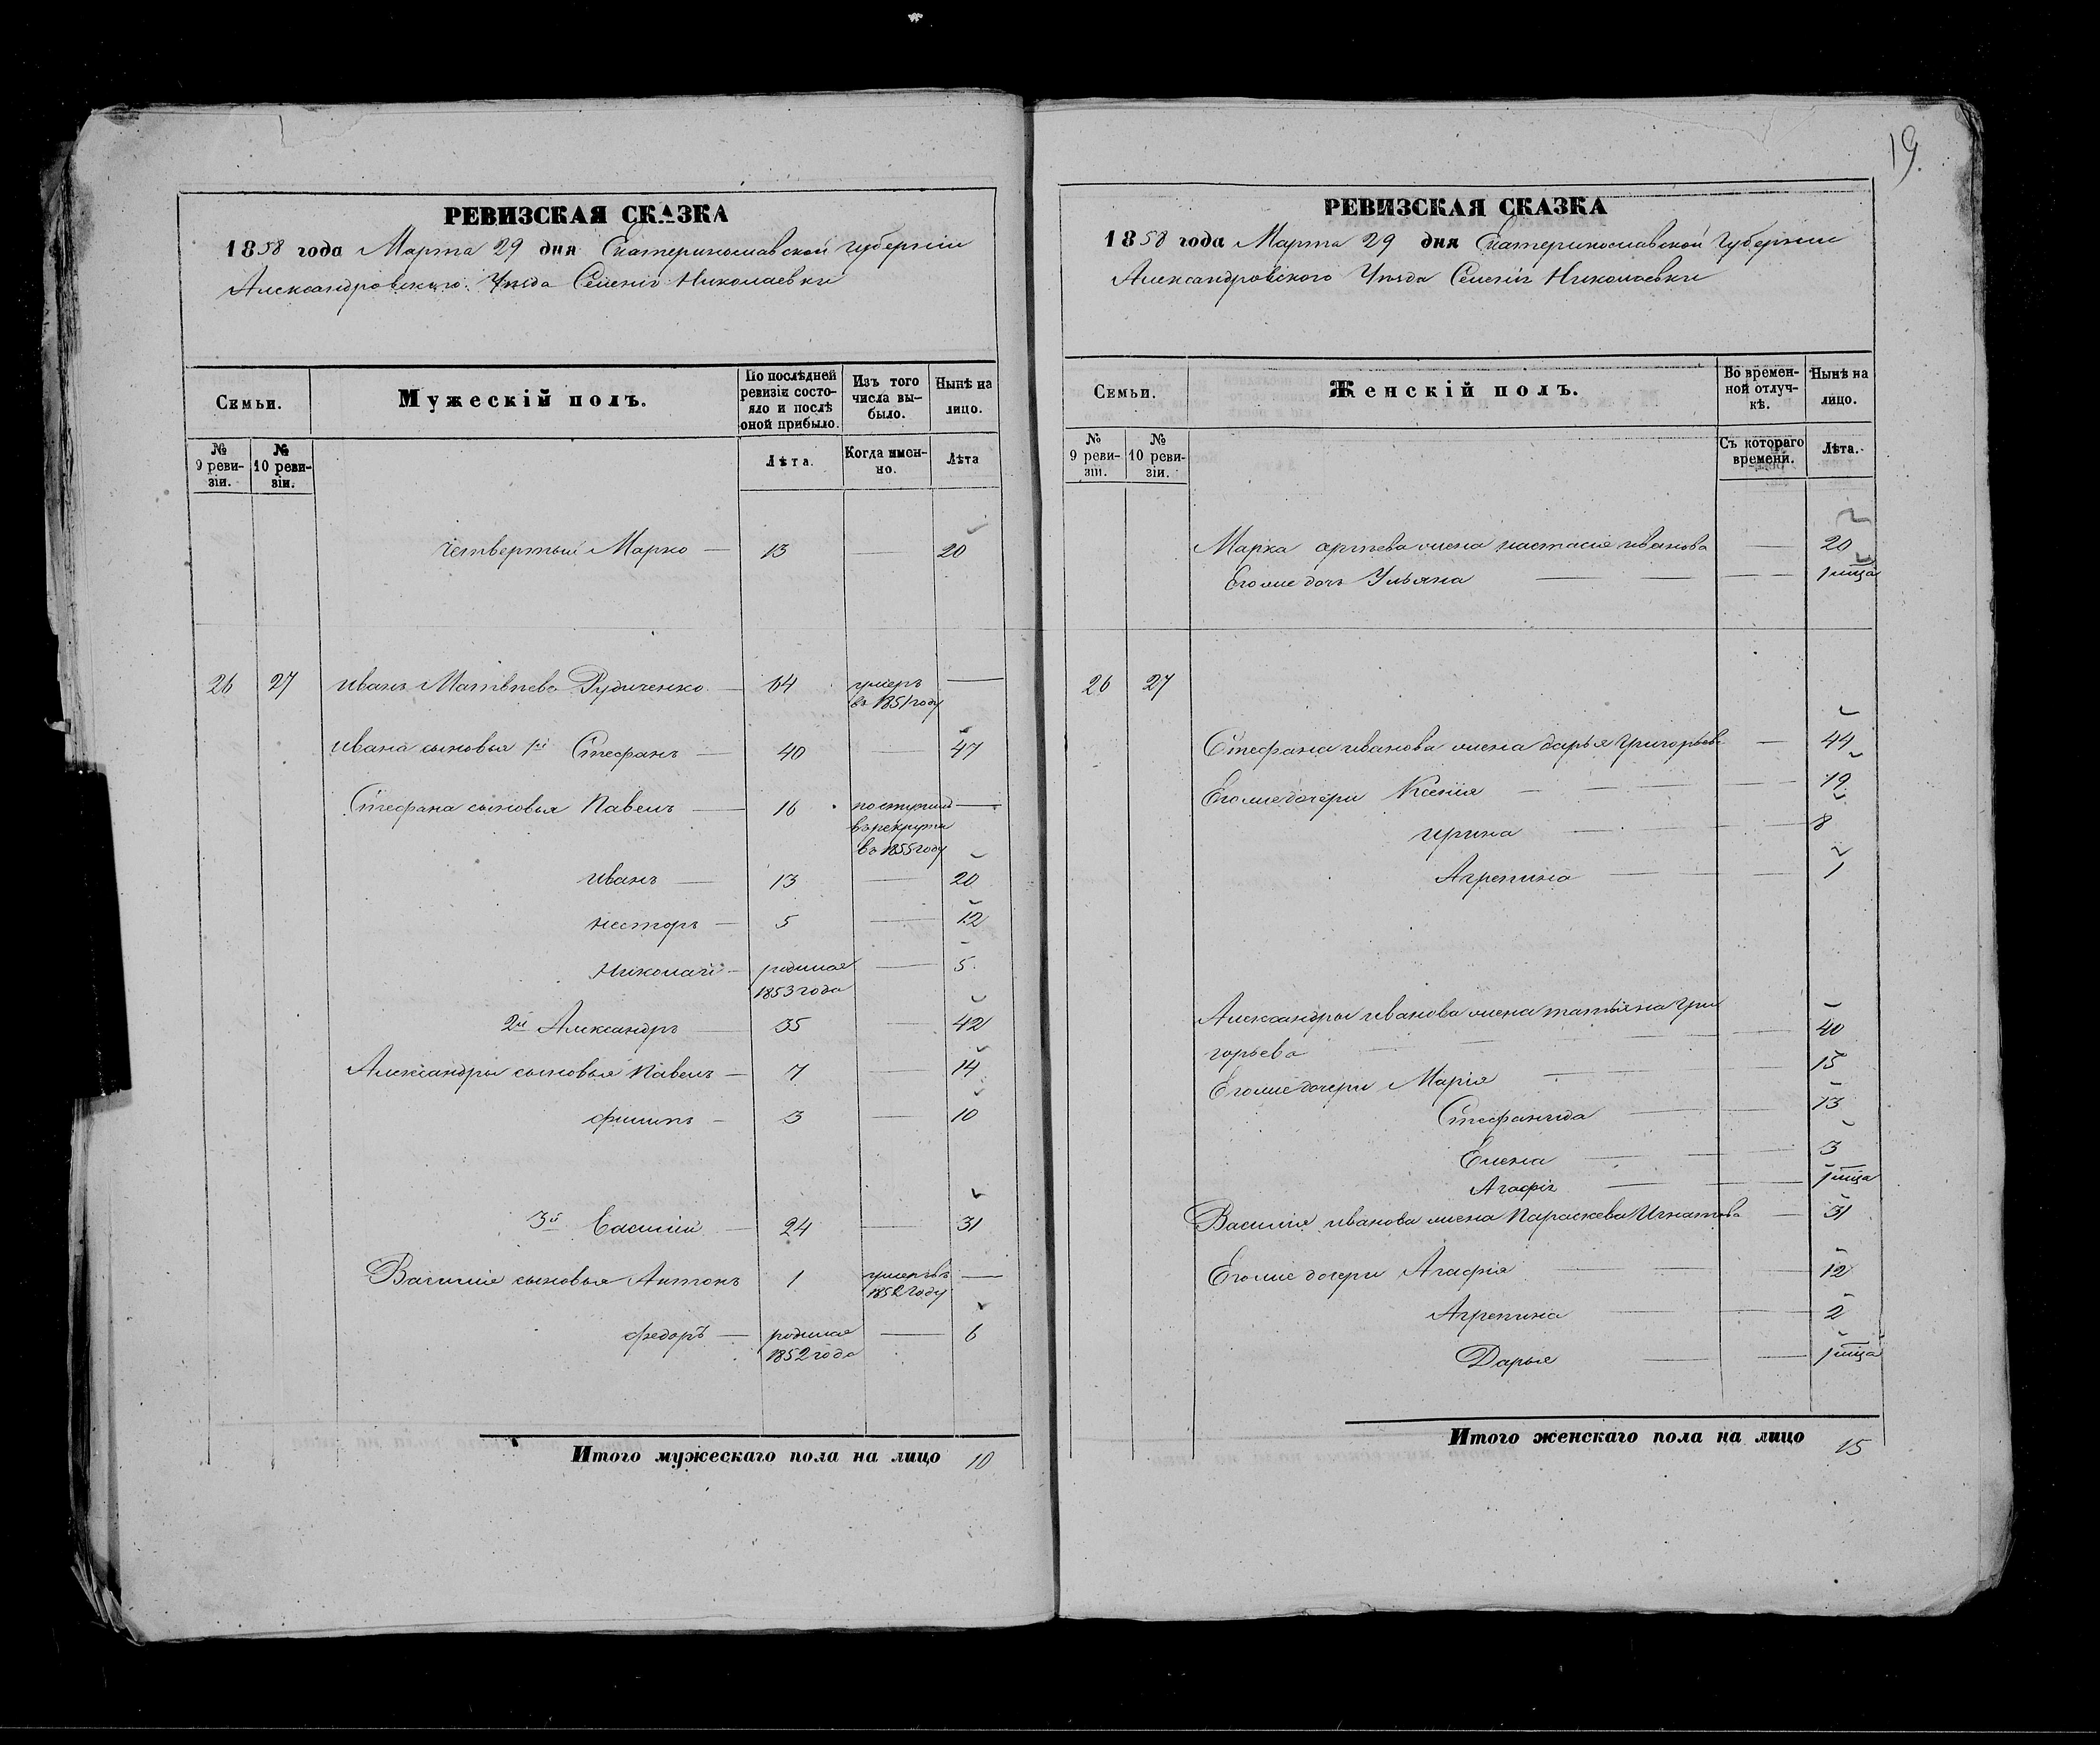 19.
РЕВИЗСКАЯ СКАЗКА
1858 года Марта 29 дня Екатеринославской губерніи
Александровскаго Уѣзда Селенія Николаевки
Семьи.
Мужескій полъ.
По послѣдней ревизіи состояло и послѣ оной прибыло.
Изъ того числа выбыло.
Нынѣ на лицо.
№ 9 ревизіи.
№ 10 ревизіи.
Лѣта.
Когда именно.
Лѣта
четвертый Марко — 13 — 20
26 27 иванъ Матвѣевъ Рудиченко — 64 умеръ въ 1851 году —
ивана сыновья 1й Стефанъ — 40 — 47
Стефана сыновья Павелъ — 16 поступилъ в рекруты въ 1855 году —
иванъ — 13 — 20
несторъ — 5 — 12
Николай — родился 1853 года — 5
2й Александръ — 35 — 42
Александры сыновья Павелъ — 7 — 14
филипъ — 3 — 10
3й Василий — 24 — 31
Василия сыновья Антонъ 1 умеръ въ 1852 году —
федоръ — родился 1852 года — 6
Итого мужескаго пола на лицо 10
РЕВИЗСКАЯ СКАЗКА
1858 года Марта 29 дня Екатеринославской Губерніи
Александровского Уѣзда Селенія Николаевки
Семьи.
Женскій полъ.
Во временной отлучкѣ.
Нынѣ на лицо.
№ 9 ревизіи.
№ 10 ревизіи.
Съ котораго времени.
Лѣта.
Марка жена настасия иванова — 20
Егоже дочь Ульяна —
26 27
Стефана иванова жена дарья григорьев — 44
Егоже дочери Ксения — 19
ирина — 8
Агрепина — 1
Александры иванова жена татьяна гри
горьева — 40
Егоже дочери Марія — 15
Стефанида — 13
Елена — 3
Агафія —
Василия иванова жена Параскева Игнатова — 31
Егоже дочери Агафия — 12
Агрепина — 2
Дарья —
Итого женскаго пола на лицо 15